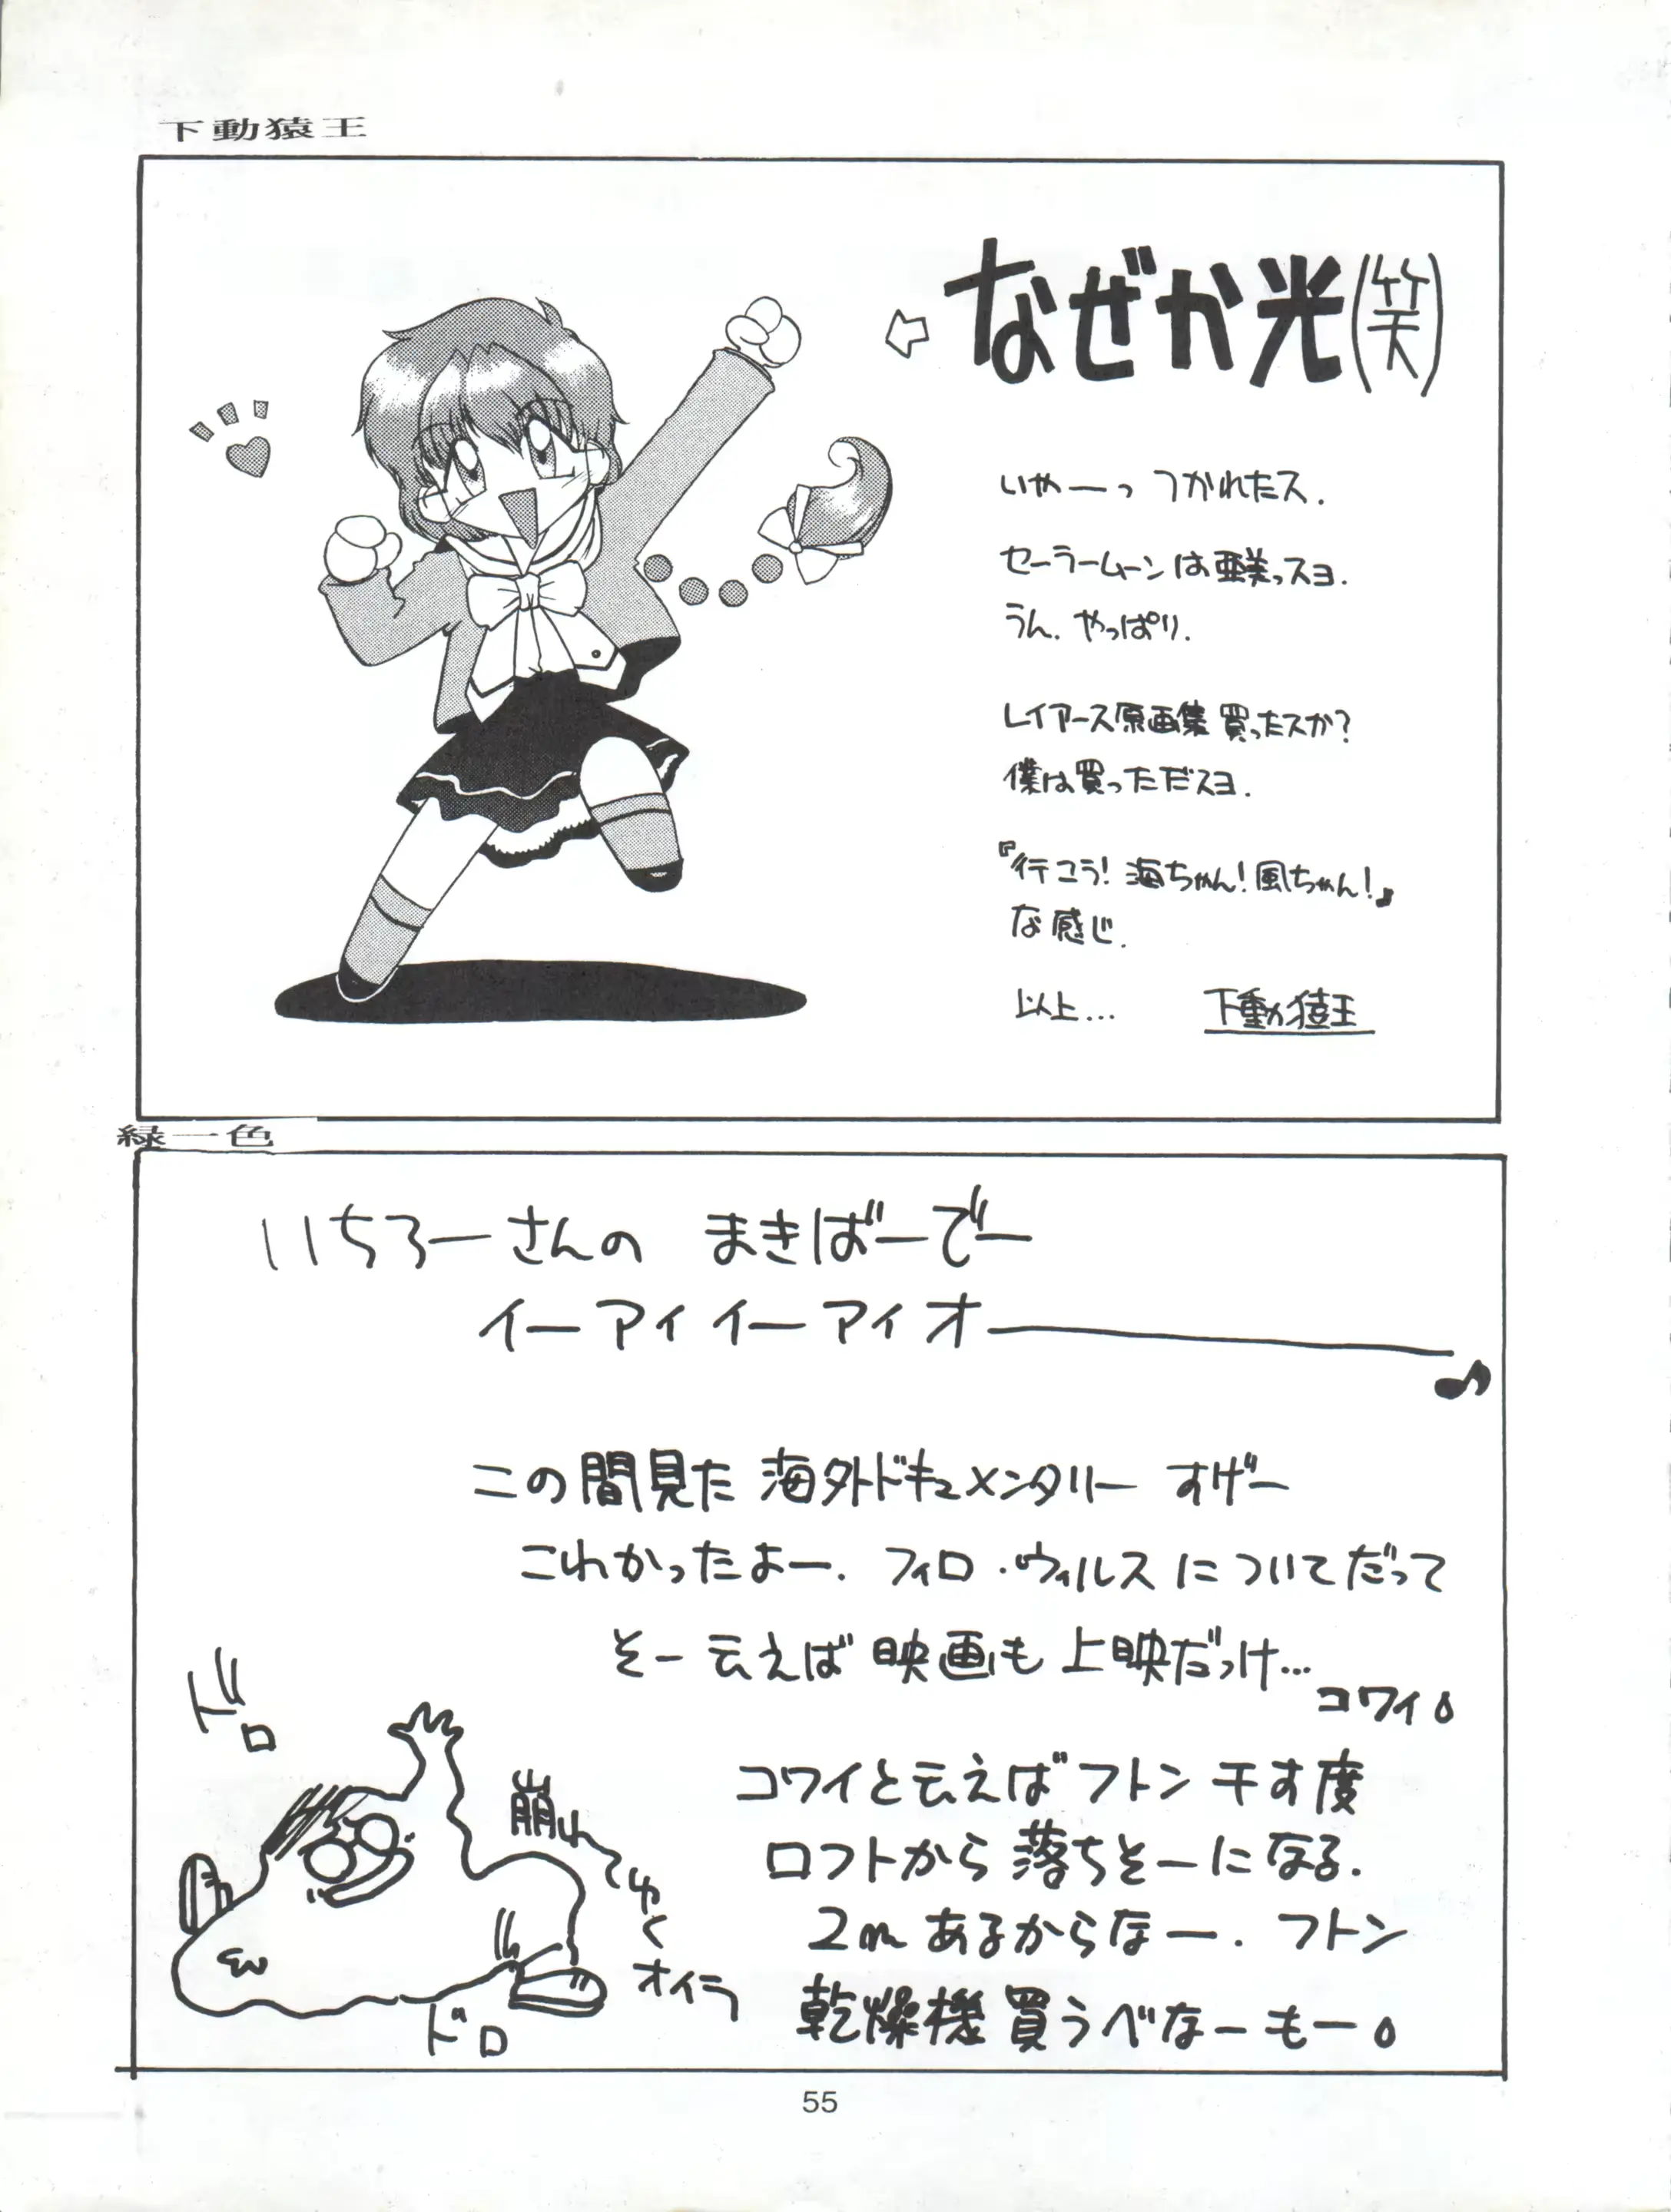 下動猿王
なぜか光(笑)
いやーっ つかれたス.
セーラームーンは亜美っスヨ.
うん. やっぱり.
レイアース原画集 買ったスか?
僕は買っただスヨ.
『行こう! 海ちゃん! 風ちゃん!』
な感じ.
以上... 下動猿王
緑一色
いちろーさんの まきばーでー
イーアイイーアイオー♪
この間見た 海外ドキュメンタリー すげー
こわかったよー. フィロ・ウィルスについてだって
そー云えば 映画も 上映だっけ...
コワイ
コワイと云えば フトン 干す度
ロフトから 落ちそーになる.
2mあるからなー. フトン
乾燥機 買うべなーもー
ドロ
崩れてゆく
オイラ
ドロ
55